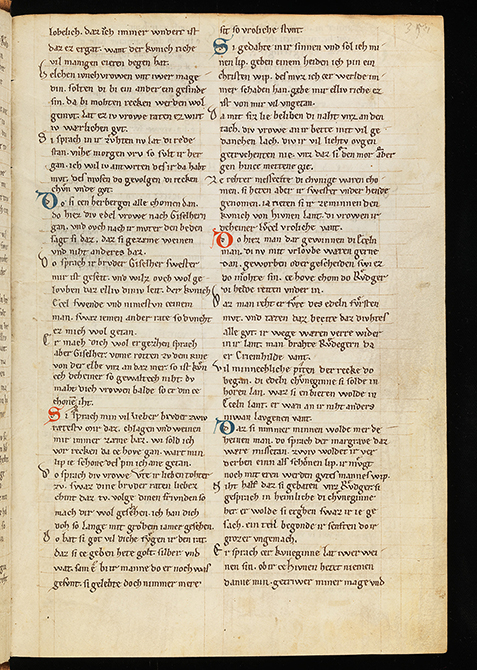 lobelich. daz ich immer wundert ist
daz ez ergat. want der kvnich riche
vil manigen eiren began bat.
Helchen ivnchvrowen vnt iwer mage
din. solten di bi ein ander en gesinde
sin. da bi mohten recken werden wol
gemvt. lat ez iv vrowe raten ez wirt
iv warlichen gvt.
Si sprach in ir zvhten nv lat di rede
stan. vnze morgen vrv so svlt ir her
gan. ich wil iv antwrten des ir da habt
mvt. des mosen do gevolgen di recken
chvn vnde gvt.
Do si zen herbergen alle chomen dan.
do hiez div edel vrowe nach Giselhern
gan. vnd ovch nach ir mvter den beden
sagt si daz. daz si gezæme weinen
vnd niht anders baz.
Do sprach ir brvder Giselher swester
mir ist geseit. vnd wilz ovch wol ge
lovben daz elliv diniv leit. der kvnich
Ecel swende vnd nimestvn ceinem
man. swaz iemen ander rate so dvncht
ez mich wol getan.
Er mach dich wol ergezhen sprach
aber Giselher. vome rotten zv dem rine
von der elbe vnz an daz mer. so ist kvn
ech deheiner so gewaltech niht. dv
maht dich vrowen balde so er din ze
chone iht.
Si sprach min vil lieber brvder zwiv
rætestv mir daz. chlagen vnd weinen
mir immer zæme baz. wi sold ich
vor recken da ze hove gan. wart min
lip ie schone des pin ich ane getan.
Do sprach div vrowe Vte ir lieben tohter
zv. swaz dine brvder raten liebez
chint daz tv. volge dinen frivnden so
mach dir wol geschen. ich han dich
doch so lange mit grozem iamer gesehen.
Do bat si got vil diche fvgen ir den rat.
daz si ze geben hete golt silber vnd
wat. sam ê bi ir manne do er noch was
gesvnt. si gelebte doch nimmer mere
sit so vroliche stvnt.
Si gedahte in ir sinnen vnd sol ich mi
nen lip. geben einem heiden ich pin ein
christen wip. des mvz ich cer werlde im
mer schaden han. gebe mir elliv riche ez
ist von mir vngetan.
Da mit siz lie beliben di naht vnz an den
tach. div vrowe an ir bette mit vil ge
danchen lach. div ir vil liehty ovgen
getrvcheten nie. vnz daz si den mor aber
gen hince mettene gie.
Ze rehter messezite di chvnige waren cho
men. si heten aber ir swester vnder hende
genomen. ia rieten si ir ze minnen den
kvnich von Hivnen lant. di vrowen ir
deheiner lvcel vroliche vant.
Do hiez man dar gewinnen di Ecceln
man. di nv mit vrlovbe waren gerne
dan. geworben oder gescheiden swi ez
do mohte sin. ce hove chom do Rvdeger
di helde reiten vnder in.
Daz man reht er fvre des edeln fvrsten
mvt. vnd tæten daz bezite daz divhtes
alle gvt. ir wege wæren verre wider
in ir lant. man brahte Rvdegern da
er Criemhilde vant.
Vil minnechliche piten der recke do
began. di edeln chvneginne si solde in
horen lan. waz si enbieten wolde in
Ecceln lant. er wæn an ir niht anders
niwan lavgenen vant.
Daz si nimmer minnen wolde mer de
heinen man. do sprach der margrave daz
wære missetan. zwiv wolder ir ver
derben einn als schonen lip. ir mvgt
noch mit eren werden gvtes mannes wip.
Niht half daz si gebaten vnz Rvdeger. si
gesprach in heimliche di chvneginne
her er wolde si erghen swaz ir ie ge
sach. ein teil begonde ir senften do ir
grozer vngemach.
Er sprach cer kvneginne lat iwer wei
nen sin. ob ir ce Hivnen hetet niemen
danne min. getriwer miner mage vnd